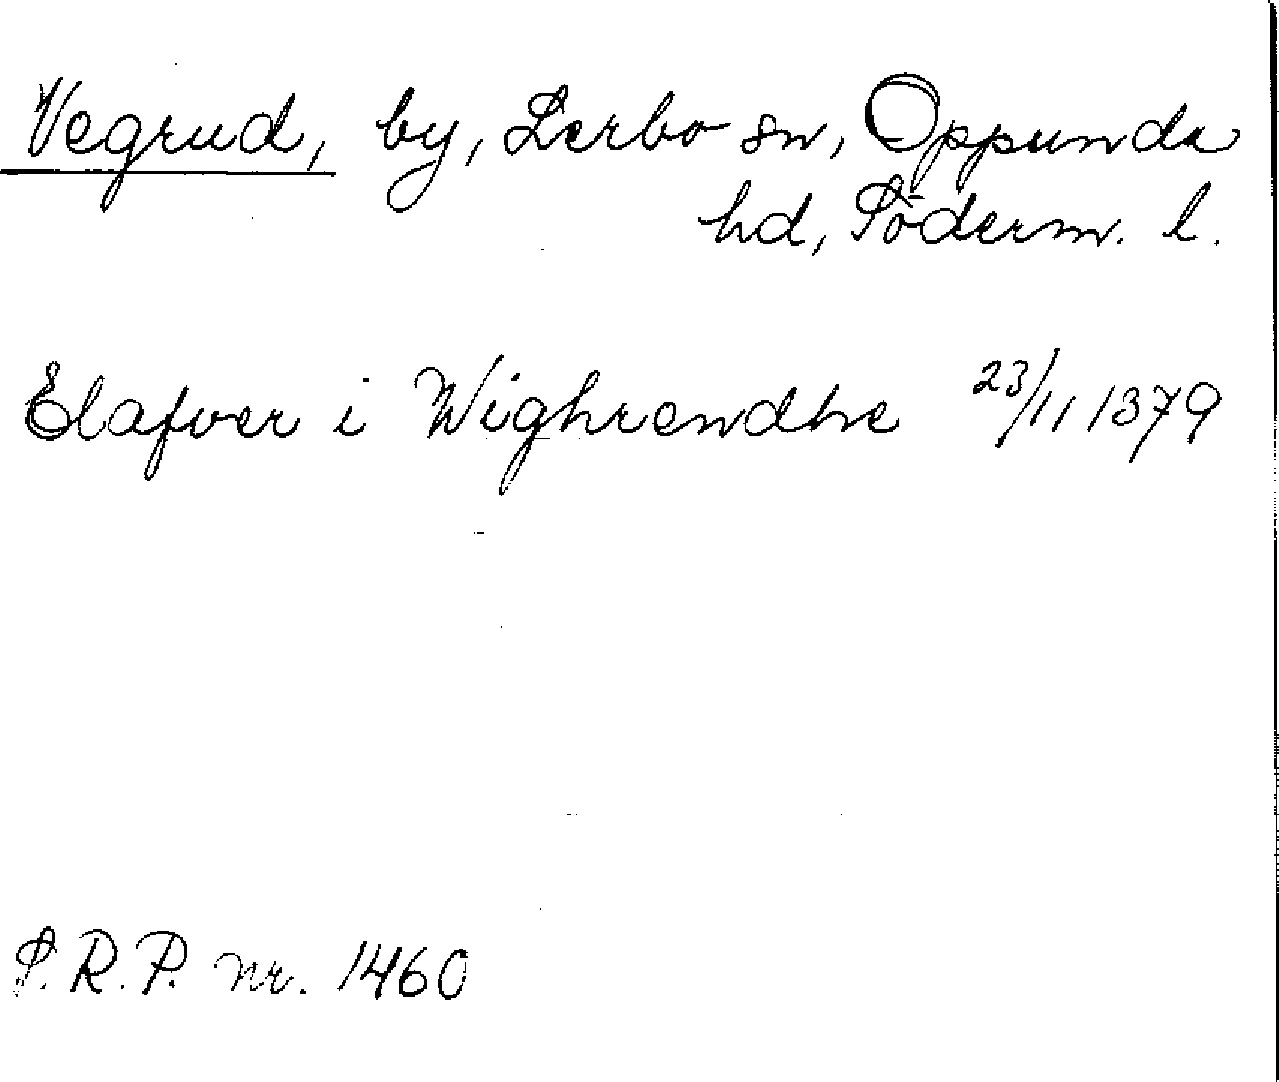 Vegrud, by, Lerbo sn, Oppunda
hd, Söderm. l.
Elafver i Wighrendhe 23/11 1379
S.R.P. nr. 1460